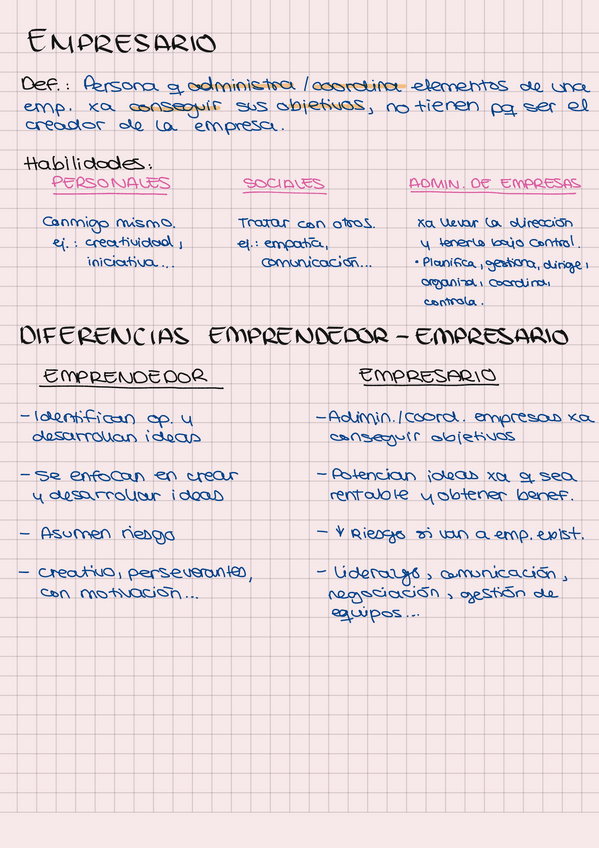 EMPRESARIO
Def.: Persona q administra / coordina elementos de una
emp. xa conseguir sus objetivos, no tienen pq ser el
creador de la empresa.
Habilidades:
PERSONALES SOCIALES ADMIN. DE EMPRESAS
Conmigo mismo. Tratar con otros. xa llevar la dirección
ej.: creatividad, ej.: empatía, y tenerlo bajo control.
iniciativa... comunicación... • Planifica, gestiona, dirige,
organiza, coordina,
controla.
DIFERENCIAS EMPRENDEDOR - EMPRESARIO
EMPRENDEDOR EMPRESARIO
- Identifican op. y - Admin./coord. empresas xa
desarrollan ideas conseguir objetivos
- Se enfocan en crear - Potencian ideas xa q sea
y desarrollar ideas rentable y obtener benef.
- Asumen riesgo - ↓ Riesgo si van a emp. exist.
- creativo, perseverantes, - Liderazgo, comunicación,
con motivación... negociación, gestión de
equipos...